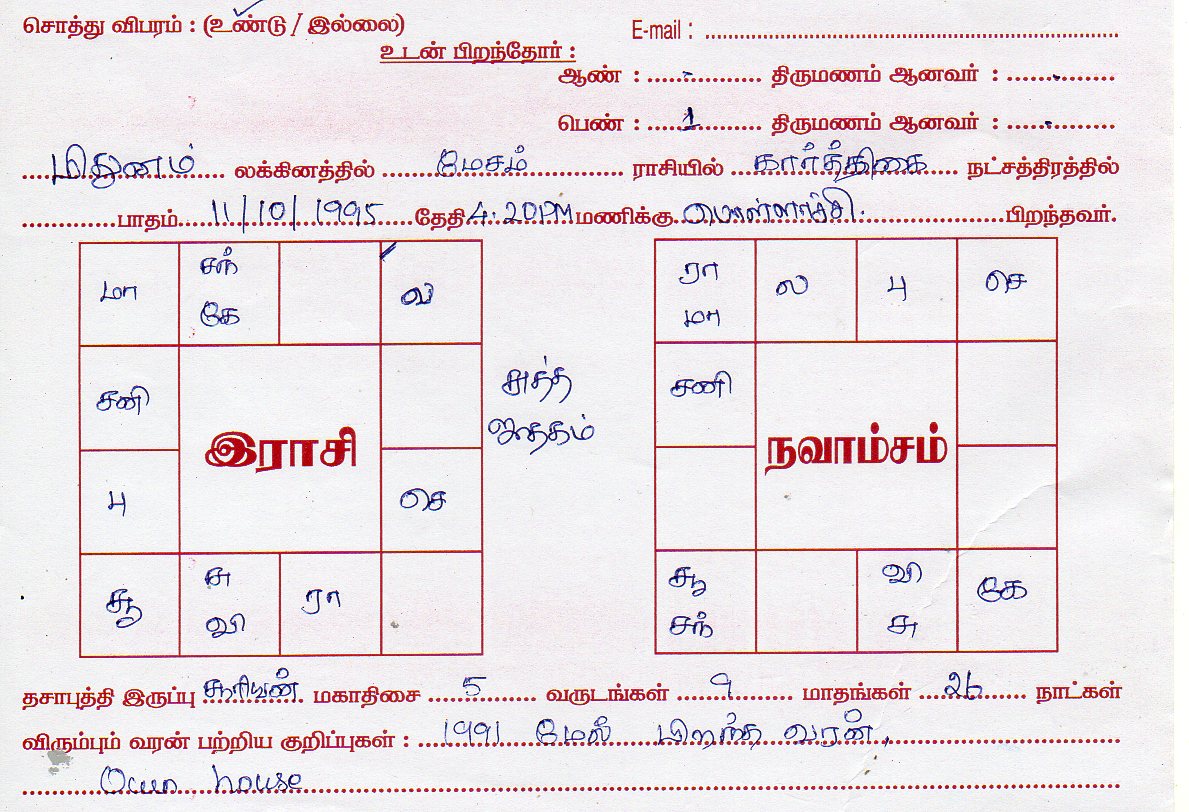 சொத்து விபரம் : (உண்டு / இல்லை)
E-mail :
உடன் பிறந்தோர் :
ஆண் : - திருமணம் ஆனவர் : .
பெண் : 1 திருமணம் ஆனவர் : .
மிதுனம் லக்கினத்தில் மேசம் ராசியில் கார்த்திகை நட்சத்திரத்தில்
பாதம் 11/10/1995 தேதி 4.20PM மணிக்கு பொள்ளாச்சி. பிறந்தவர்.
மா சந் ல
கே
சனி
பு செ
சூ சு ரா
வி
இராசி
சுத்த
ஜாதகம்
ரா ல பு செ
மா
சனி
சூ வி கே
சந் சு
நவாம்சம்
தசாபுத்தி இருப்பு சூரியன் மகாதிசை 5 வருடங்கள் 9 மாதங்கள் 26 நாட்கள்
விரும்பும் வரன் பற்றிய குறிப்புகள் : 1991 மேல் பிறந்த வரன்,
Own house